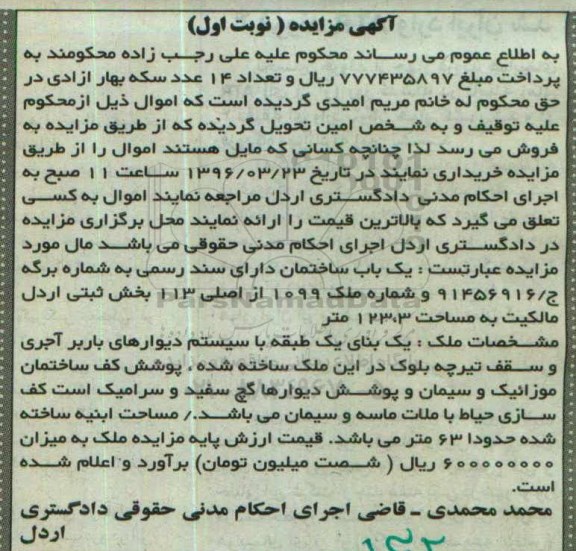 آگهی مزایده ( نوبت اول)
به اطلاع عموم می رساند محکوم علیه علی رجب زاده محکومند به
پرداخت مبلغ ۷۷۷۴۳۵۸۹۷ ریال و تعداد ۱۴ عدد سکه بهار ازادی در
حق محکوم له خانم مریم امیدی گردیده است که اموال ذیل ازمحکوم
علیه توقیف و به شخص امین تحویل گردیده که از طریق مزایده به
فروش می رسد لذا چنانچه کسانی که مایل هستند اموال را از طریق
مزایده خریداری نمایند در تاریخ ۱۳۹۶/۰۳/۲۳ ساعت ۱۱ صبح به
اجرای احکام مدنی دادگستری اردل مراجعه نمایند اموال به کسی
تعلق می گیرد که بالاترین قیمت را ارائه نمایند محل برگزاری مزایده
در دادگستری اردل اجرای احکام مدنی حقوقی می باشد مال مورد
مزایده عبارتست : یک باب ساختمان دارای سند رسمی به شماره برگه
ج/۹۱۴۵۶۹۱۶ و شماره ملک ۱۰۹۹ از اصلی ۱۱۳ بخش ثبتی اردل
مالکیت به مساحت ۱۲۳،۳ متر
مشخصات ملک : یک بنای یک طبقه با سیستم دیوارهای باربر آجری
و سقف تیرچه بلوک در این ملک ساخته شده ، پوشش کف ساختمان
موزائیک و سیمان و پوشش دیوارها گچ سفید و سرامیک است کف
سازی حیاط با ملات ماسه و سیمان می باشد./ مساحت ابنیه ساخته
شده حدودا ۶۳ متر می باشد. قیمت ارزش پایه مزایده ملک به میزان
۶۰۰۰۰۰۰۰۰ ریال ( شصت میلیون تومان) برآورد و اعلام شده
است.
محمد محمدی ـ قاضی اجرای احکام مدنی حقوقی دادگستری
اردل
ParsNamadData